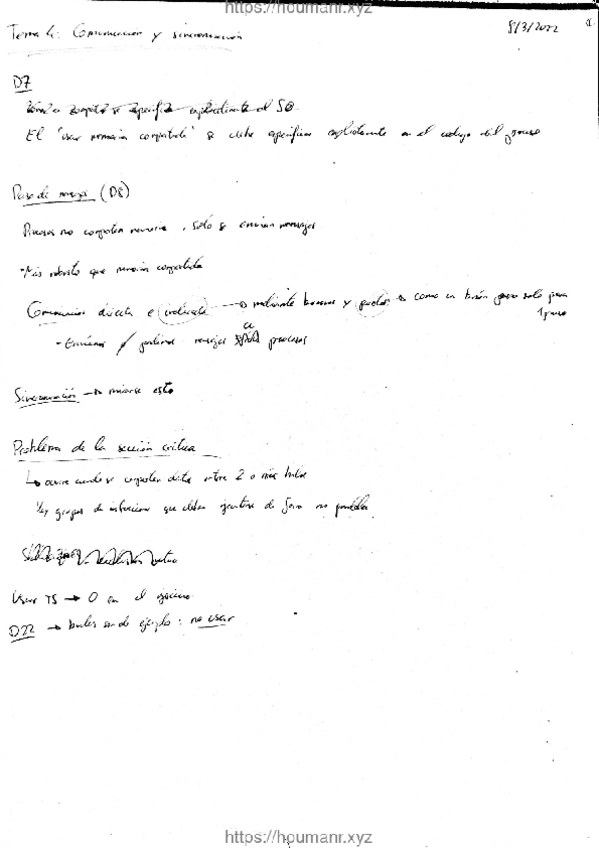 https://houmanr.xyz
Tema 4: Comunicación y sincronización
8/3/2022
D7
El "usar memoria compartida" se debe especificar explícitamente en el código del proceso
Paso de mensajes (D8)
Procesos no comparten memoria, solo se envían mensajes
-Más robusto que memoria compartida
Comunicación directa e indirecta → mediante buzones y puertos → como un buzón pero solo para
1 proceso
-Enviamos y pedimos mensajes procesos
Sincronización → mirarse esto
Problema de la sección crítica
↳ ocurre cuando se comparten datos entre 2 o más hilos
Hay grupos de instrucciones que deben ejecutarse de forma no paralela
Usar TS → 0 en el ejercicio
D22 → ejemplo: no usar
https://houmanr.xyz